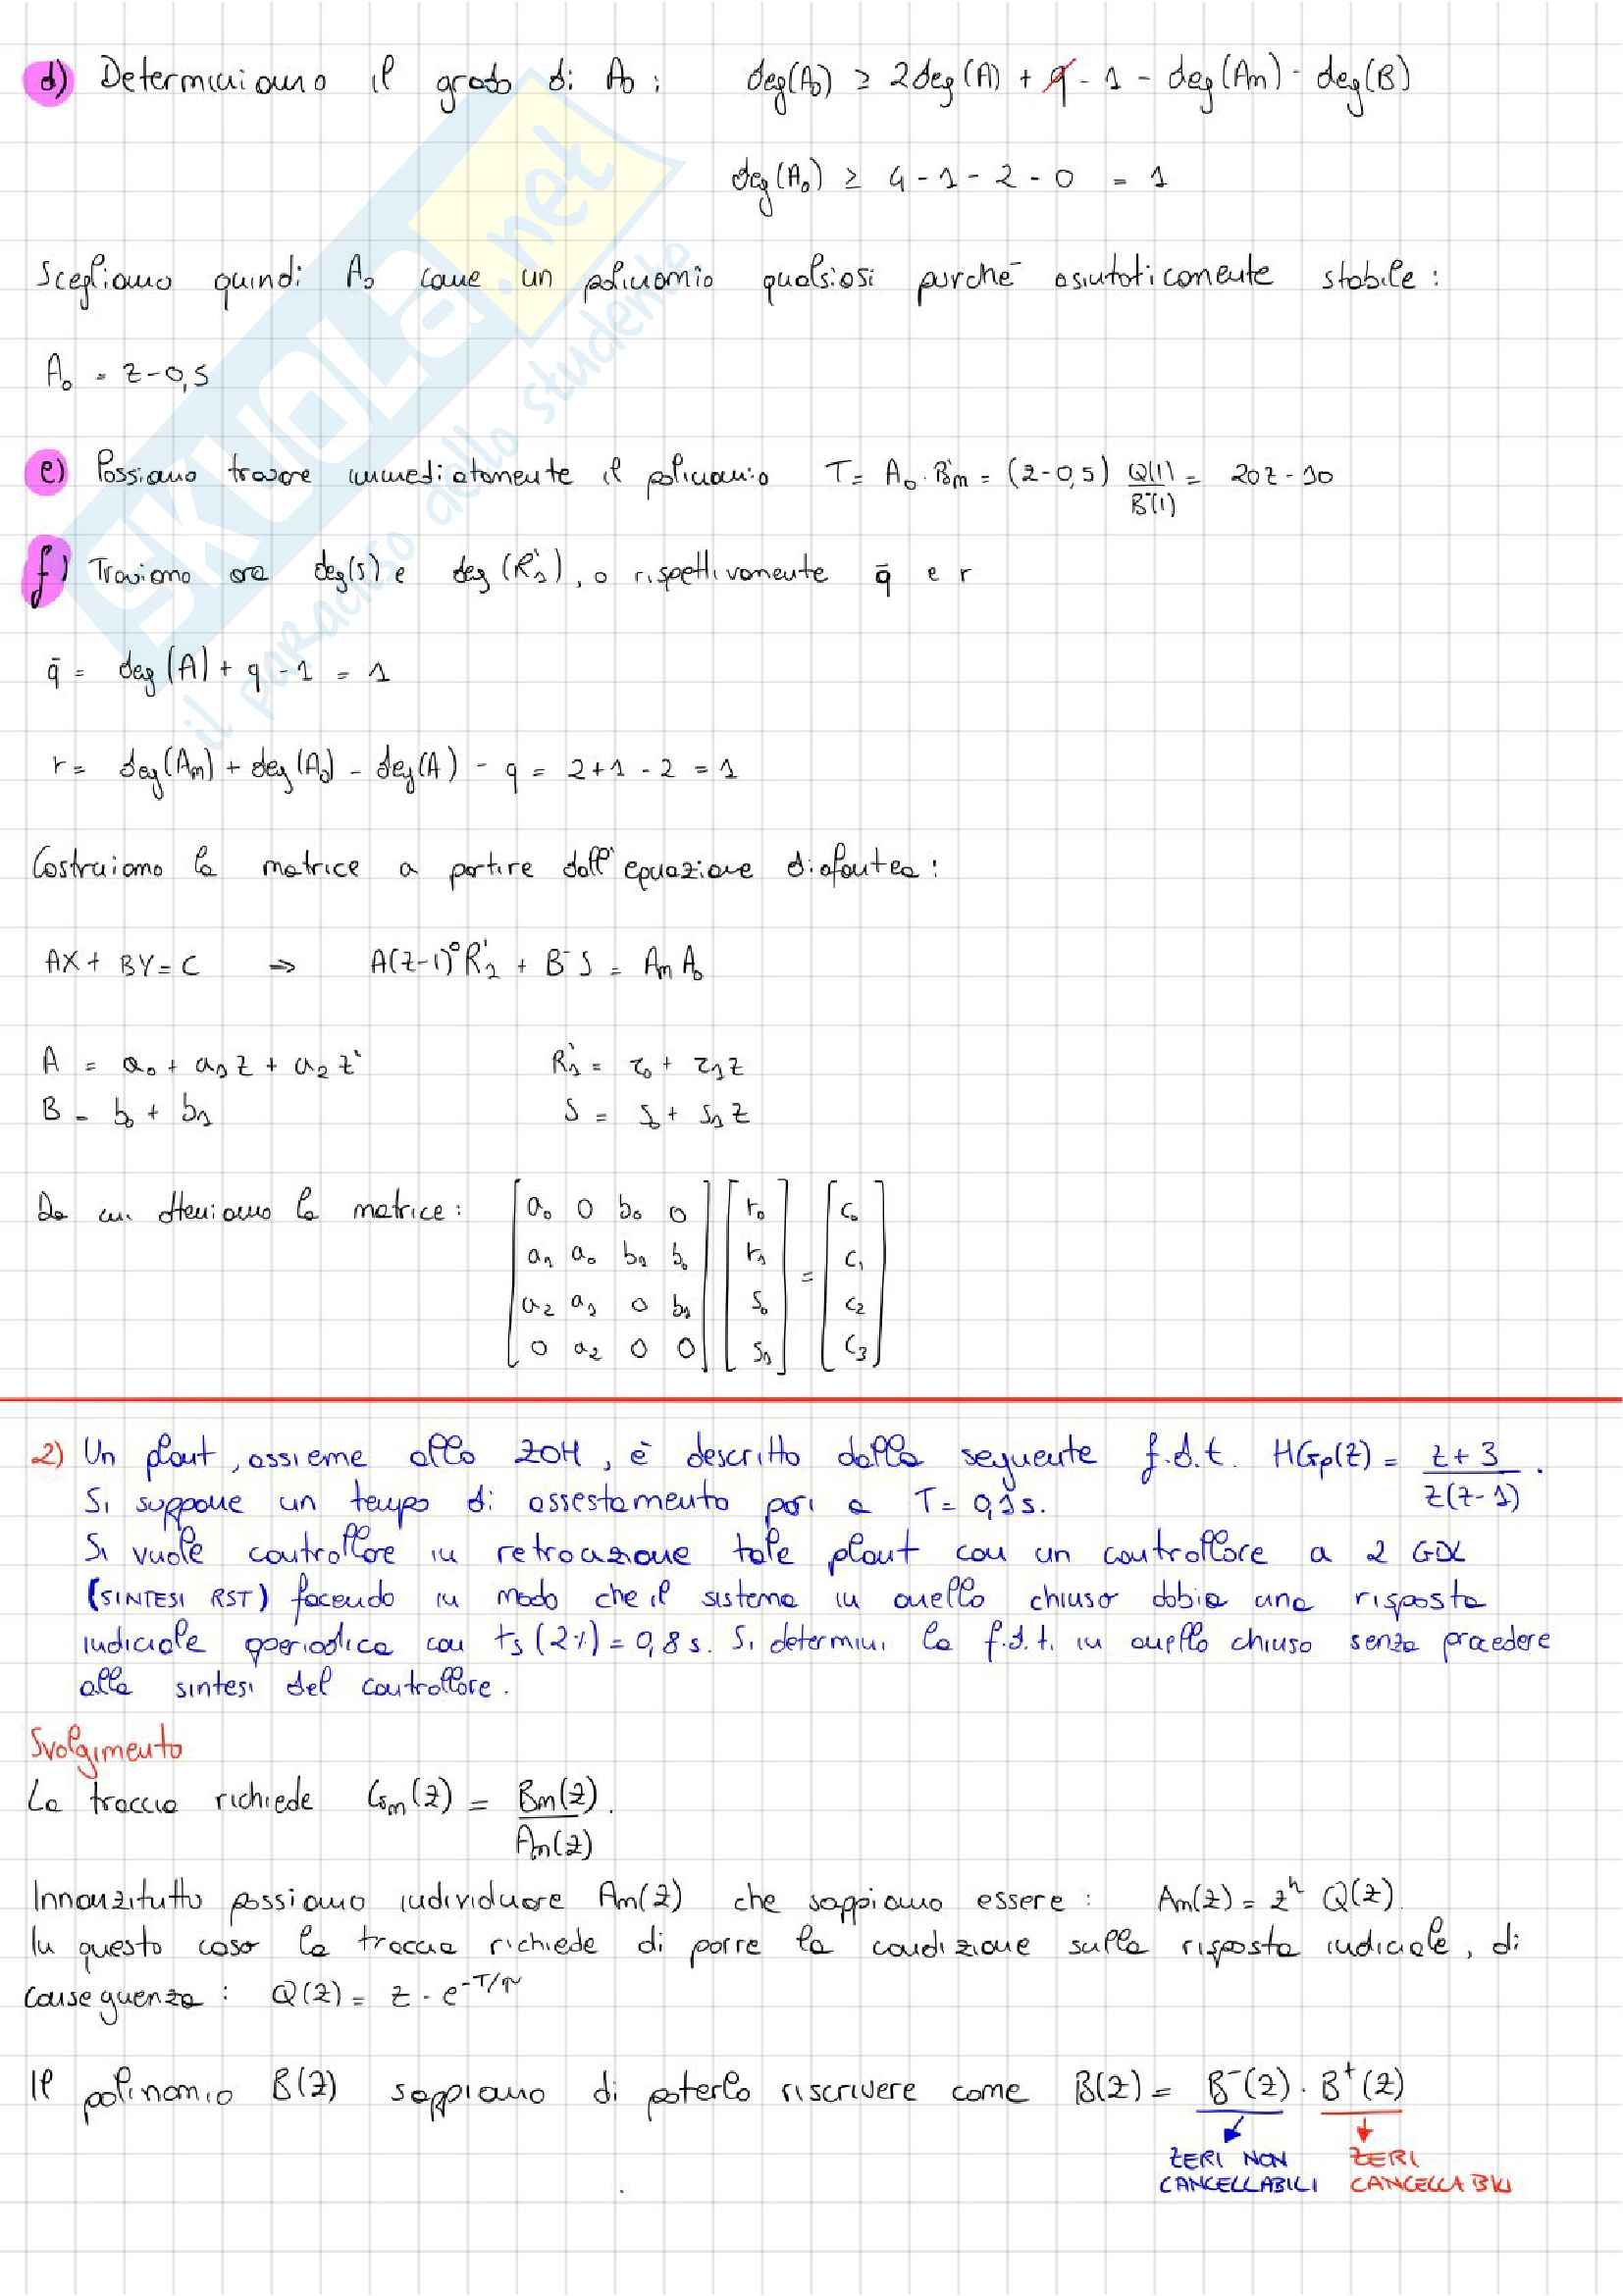 d) Determiniamo il grado di A₀ : deg(A₀) ≥ 2deg(A) + q - 1 - deg(Am) - deg(B)
deg(A₀) ≥ 4 - 1 - 2 - 0 = 1
Scegliamo quindi A₀ come un polinomio qualsiasi purché asintoticamente stabile :
A₀ = z - 0,5
e) Possiamo trovare immediatamente il polinomio T = A₀ · B'm = (z - 0,5) Q(1)/B⁻(1) = 20z - 10
f) Troviamo ora deg(S) e deg(R'₁), o rispettivamente q̄ e r
q̄ = deg(A) + q - 1 = 1
r = deg(Am) + deg(A₀) - deg(A) - q = 2 + 1 - 2 = 1
Costruiamo la matrice a partire dall'equazione diofantea :
AX + BY = C ⇒ A(z-1)⁰R'₁ + B⁻S = Am A₀
A = a₀ + a₁z + a₂z² R'₁ = r₀ + r₁z
B = b₀ + b₁ S = s₀ + s₁z
Da cui otteniamo la matrice : [a₀ 0 b₀ 0] [r₀] [c₀]
[a₁ a₀ b₁ b₀] [r₁] = [c₁]
[a₂ a₁ 0 b₁] [s₀] [c₂]
[0 a₂ 0 0] [s₁] [c₃]
2) Un plant, assieme allo ZOH, è descritto dalla seguente f.d.t. HGp(z) = z + 3 / z(z-1) .
Si suppone un tempo di assestamento pari a T = 0,1s.
Si vuole controllare in retroazione tale plant con un controllore a 2 GDL
(SINTESI RST) facendo in modo che il sistema in anello chiuso abbia una risposta
indiciale aperiodica con ts(2%) = 0,8 s. Si determini la f.d.t. in anello chiuso senza procedere
alla sintesi del controllore.
Svolgimento
La traccia richiede Gm(z) = Bm(z) / Am(z) .
Innanzitutto possiamo individuare Am(z) che sappiamo essere : Am(z) = zʰ Q(z).
In questo caso la traccia richiede di porre la condizione sulla risposta indiciale, di
conseguenza : Q(z) = z - e^(-T/τ)
Il polinomio B(z) sappiamo di poterlo riscrivere come B(z) = B⁻(z) · B⁺(z)
ZERI NON CANCELLABILI
ZERI CANCELLABILI
SKUOLA.net
il paradiso dello studente